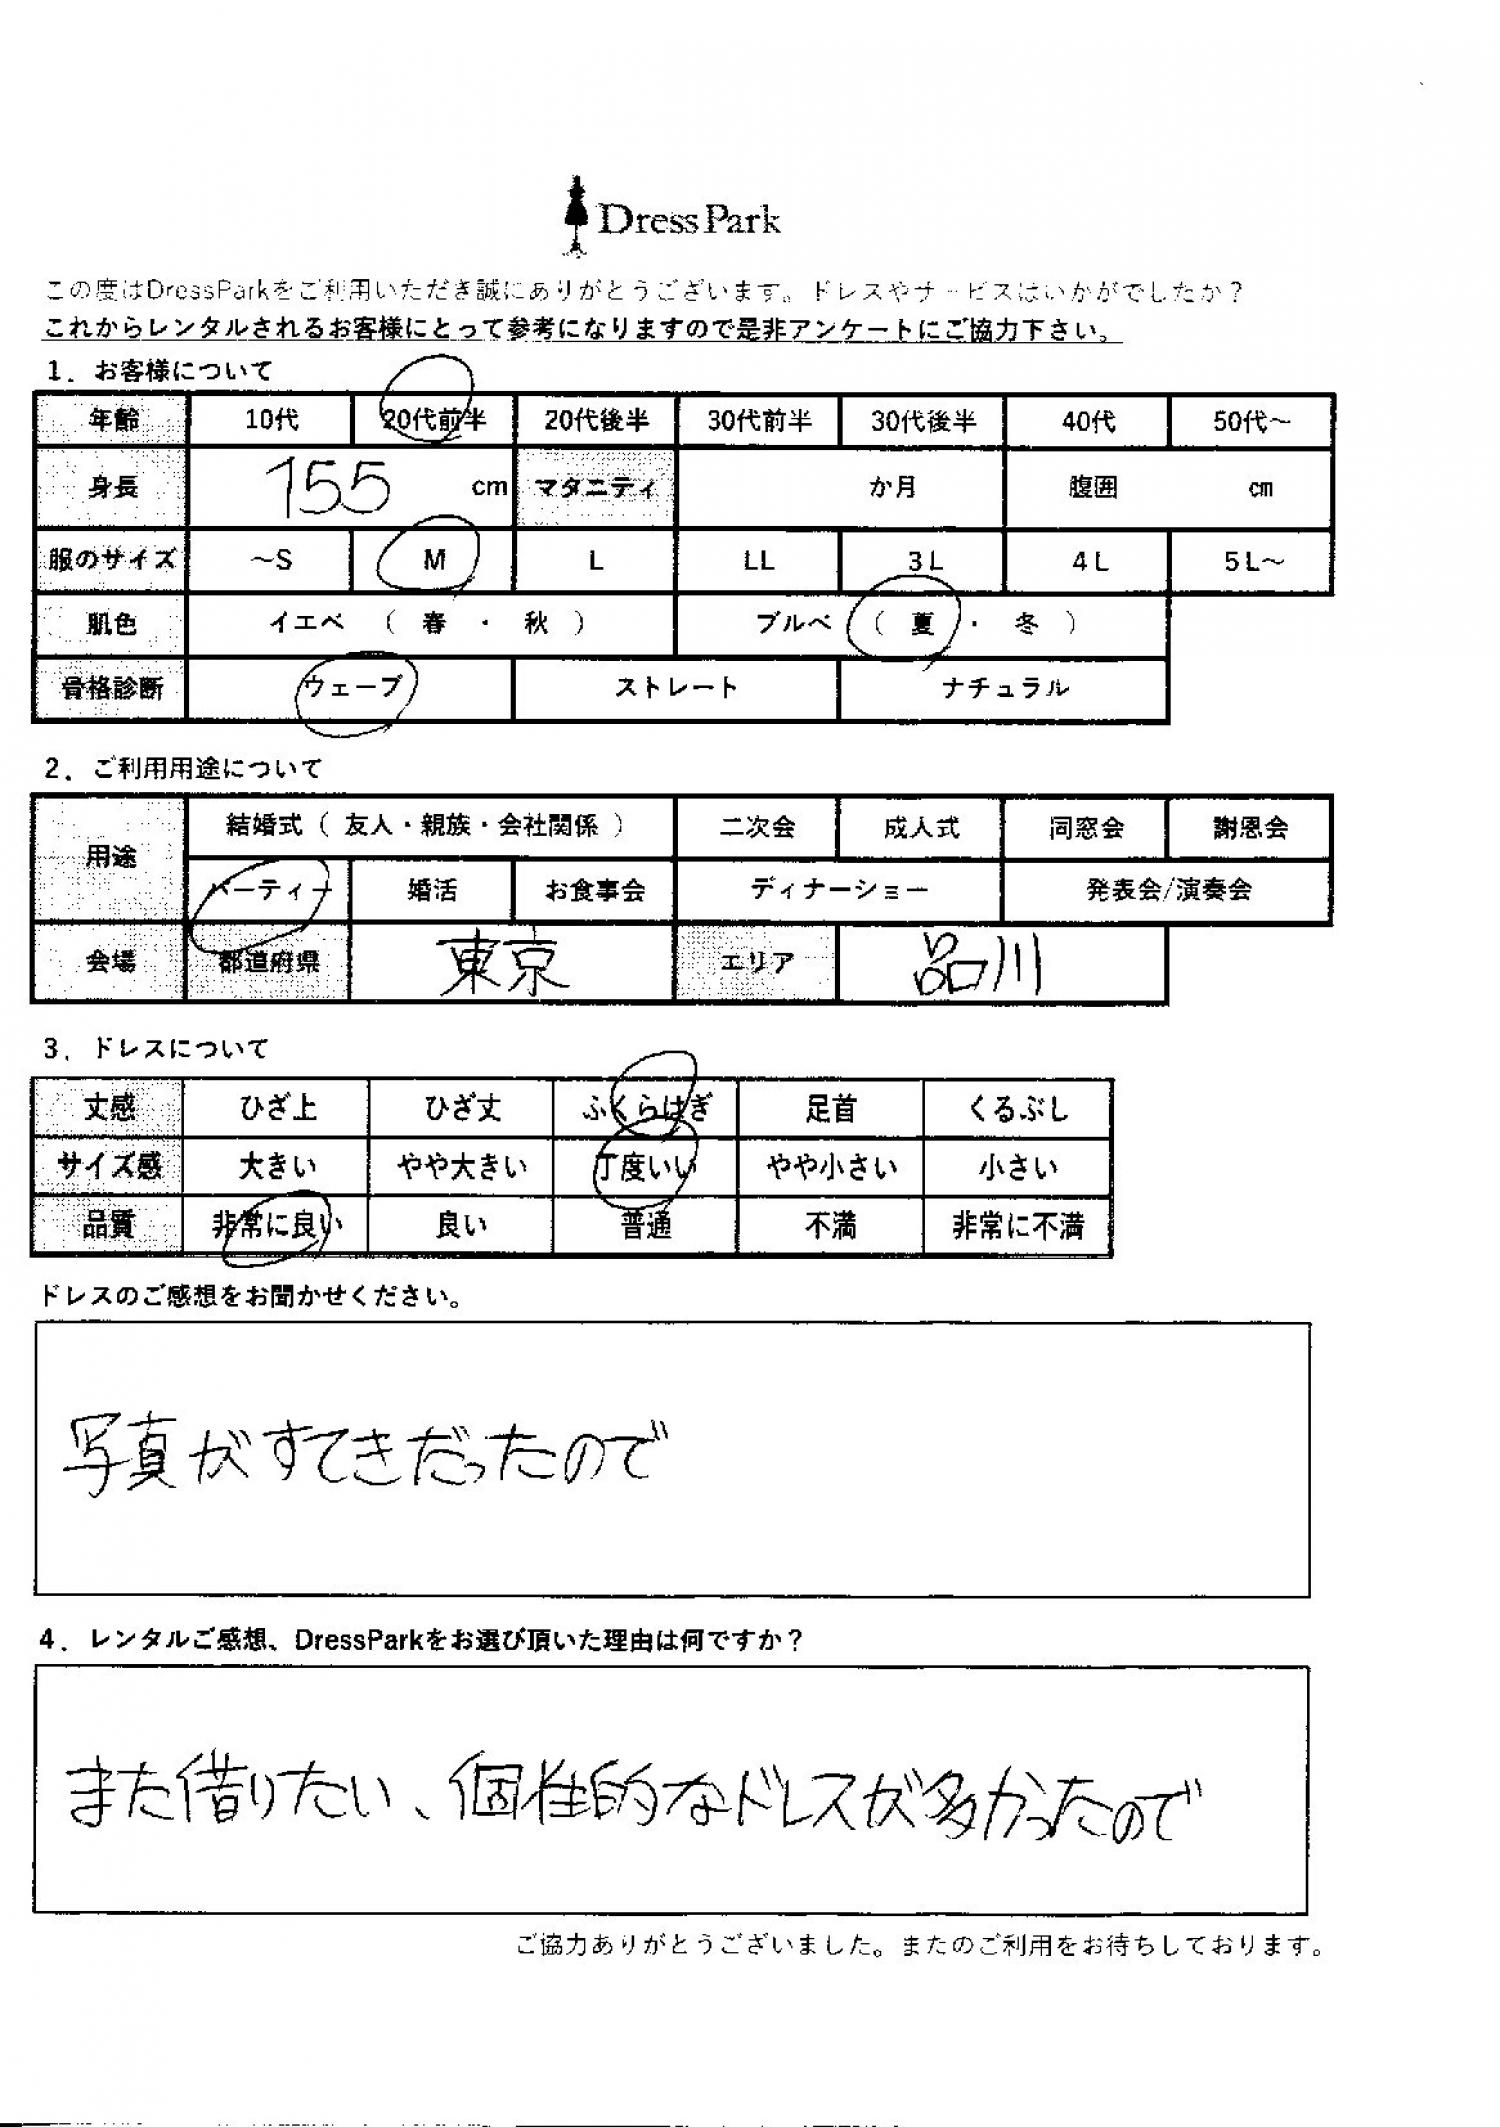 DressPark
この度はDressParkをご利用いただき誠にありがとうございます。ドレスやサービスはいかがでしたか？
これからレンタルされるお客様にとって参考になりますので是非アンケートにご協力下さい。
1．お客様について
年齢 10代 20代前半 20代後半 30代前半 30代後半 40代 50代～
身長 155 cm マタニティ か月 腹囲 cm
服のサイズ ～S M L LL 3L 4L 5L～
肌色 イエベ （ 春 ・ 秋 ） ブルベ （ 夏 ・ 冬 ）
骨格診断 ウェーブ ストレート ナチュラル
2．ご利用用途について
用途 結婚式（ 友人・親族・会社関係 ） 二次会 成人式 同窓会 謝恩会
パーティー 婚活 お食事会 ディナーショー 発表会/演奏会
会場 都道府県 東京 エリア 品川
3．ドレスについて
丈感 ひざ上 ひざ丈 ふくらはぎ 足首 くるぶし
サイズ感 大きい やや大きい 丁度いい やや小さい 小さい
品質 非常に良い 良い 普通 不満 非常に不満
ドレスのご感想をお聞かせください。
写真がすてきだったので
4．レンタルご感想、DressParkをお選び頂いた理由は何ですか？
また借りたい、個性的なドレスが多かったので
ご協力ありがとうございました。またのご利用をお待ちしております。